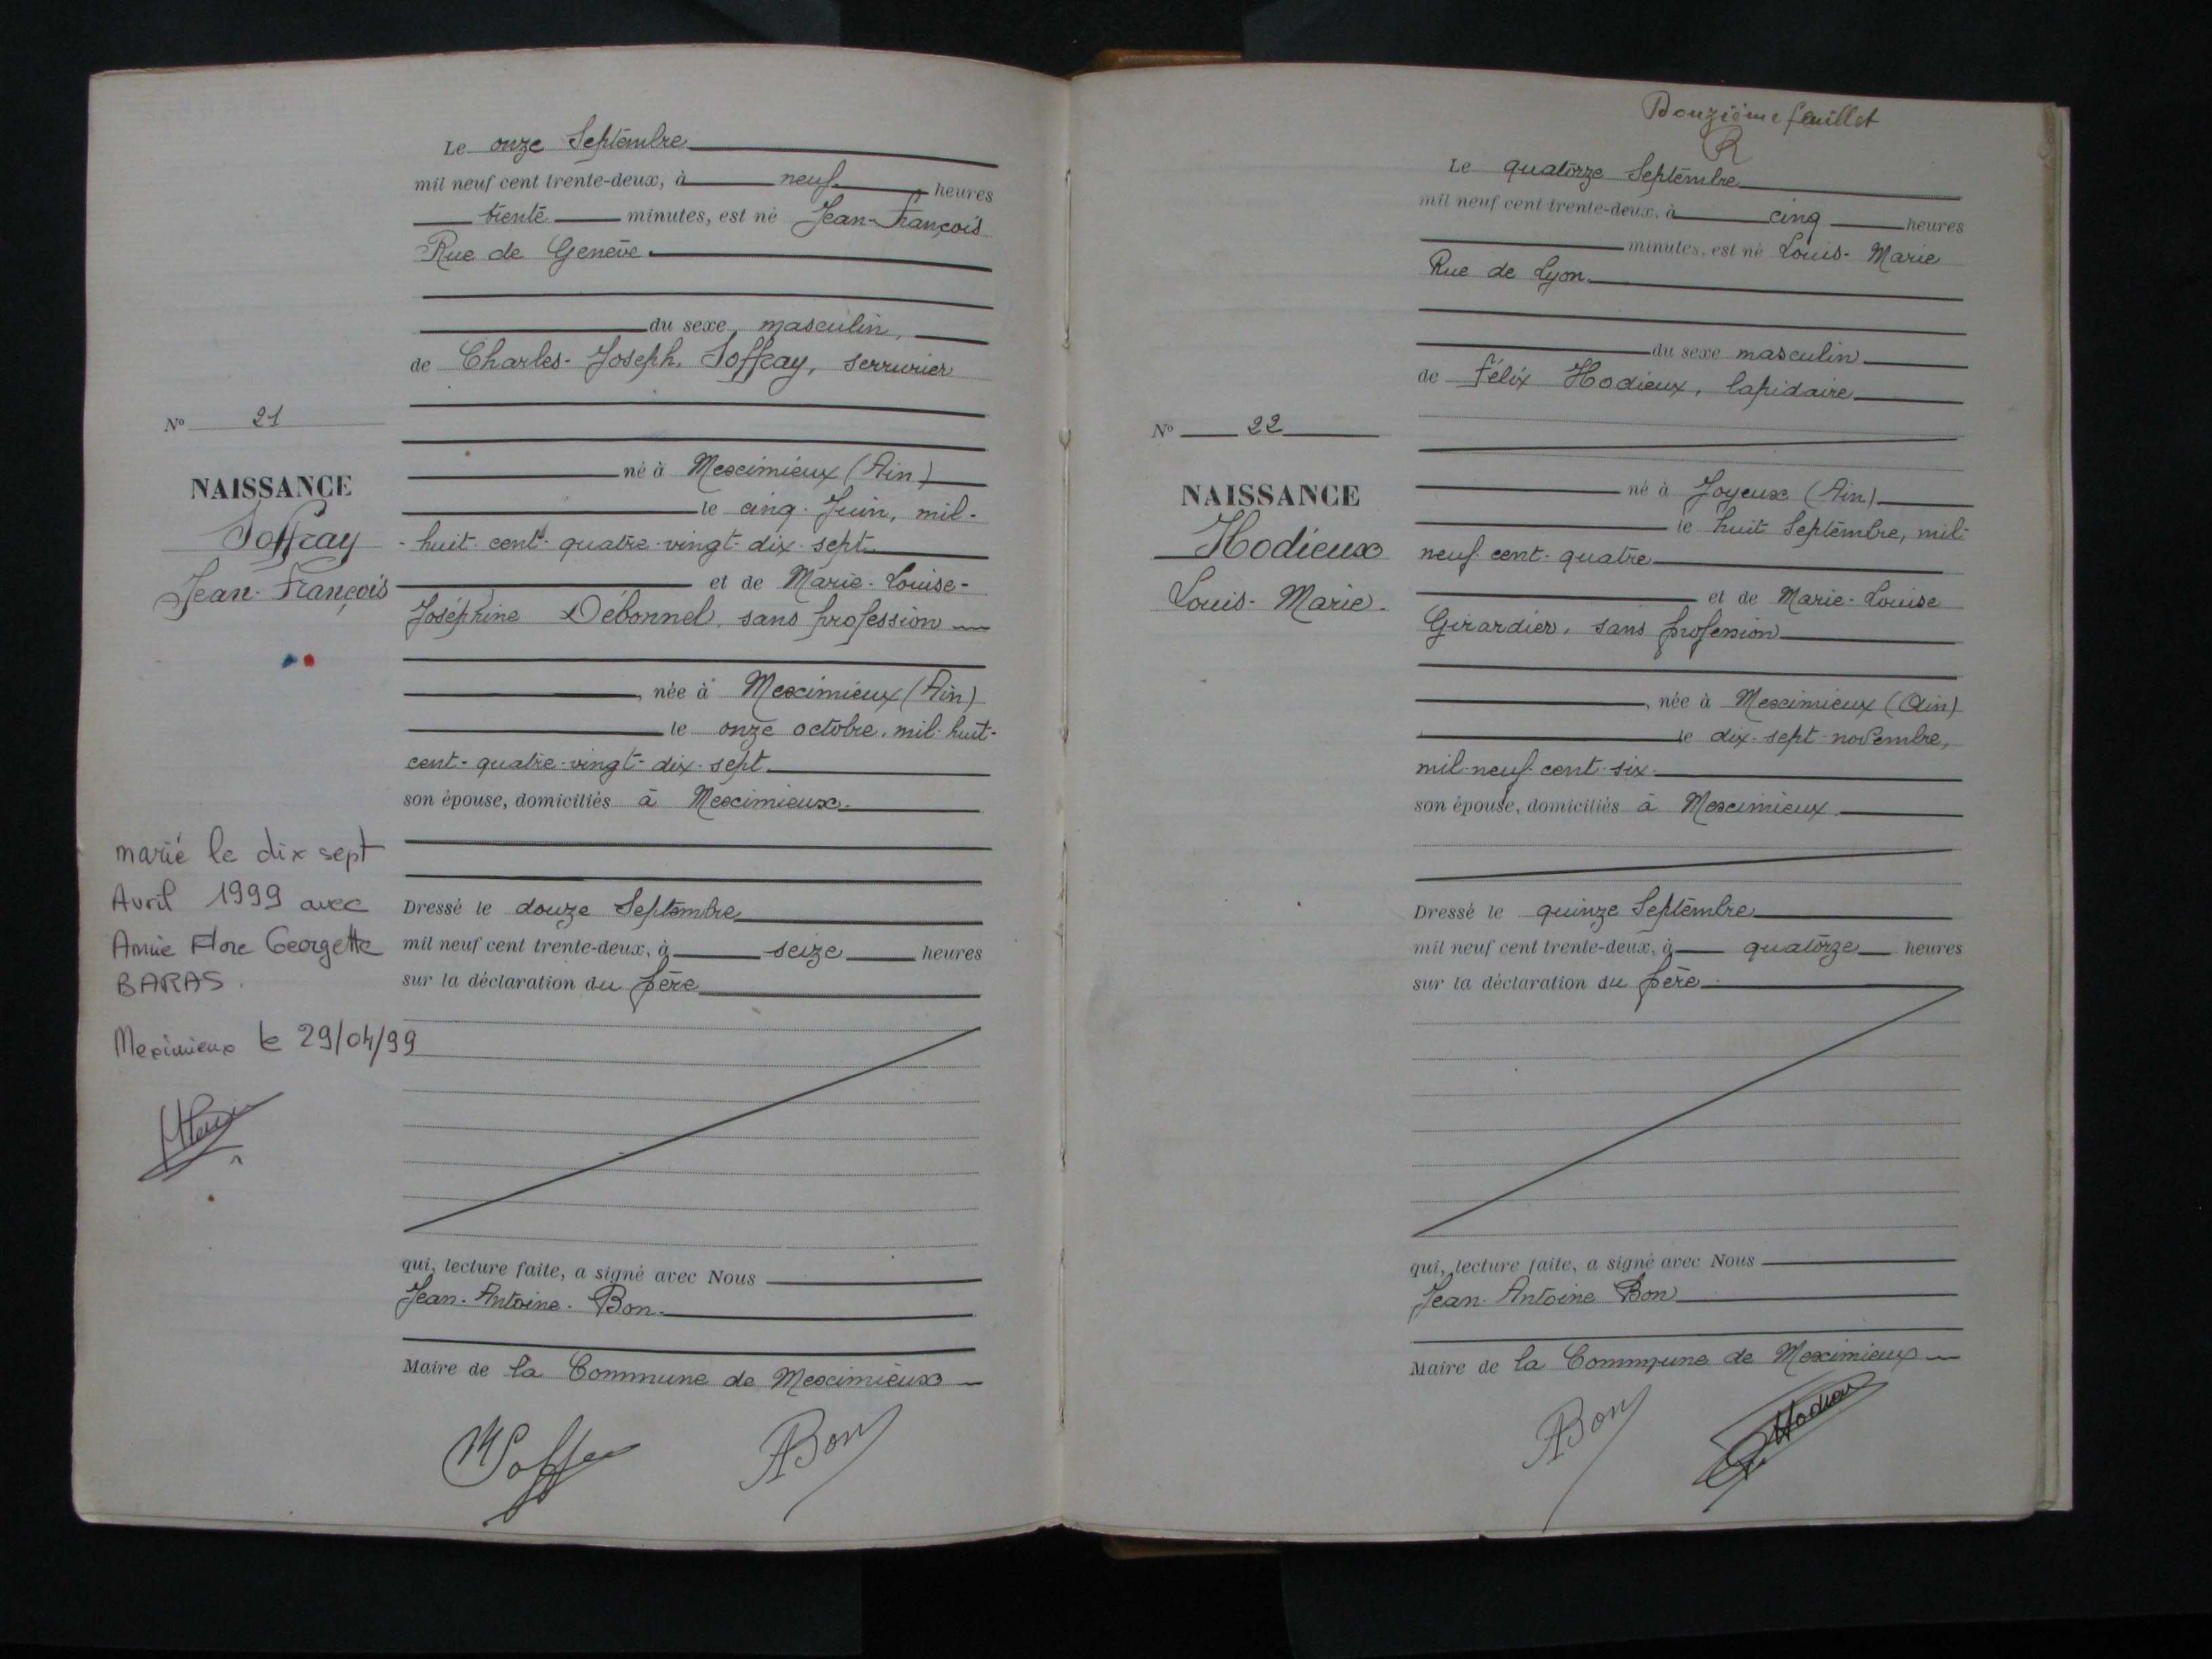 Le onze Septembre
mil neuf cent trente-deux, à neuf heures
trente minutes, est né Jean-François
Rue de Genève
du sexe masculin,
de Charles-Joseph Soffray, serrurier
né à Meximieux (Ain)
le cinq Juin, mil-
huit-cent-quatre-vingt-dix-sept
et de Marie-Louise-
Joséphine Débonnel, sans profession
, née à Meximieux (Ain)
le onze octobre, mil-huit-
cent-quatre-vingt-dix-sept
son épouse, domiciliés à Meximieux.
Dressé le douze Septembre
mil neuf cent trente-deux, à seize heures
sur la déclaration du père
qui, lecture faite, a signé avec Nous
Jean-Antoine Bon
Maire de la Commune de Meximieux
ABon
N° 21
NAISSANCE
Soffray
Jean-François
marié le dix sept
Avril 1999 avec
Annie Flore Georgette
BARAS.
Meximieux le 29/04/99
Douzième feuillet
R
Le quatorze Septembre
mil neuf cent trente-deux, à cinq heures
minutes, est né Louis-Marie
Rue de Lyon
du sexe masculin
de Félix Hodieux, lapidaire
né à Joyeux (Ain)
le huit Septembre, mil-
neuf-cent-quatre
et de Marie-Louise
Girardier, sans profession
, née à Meximieux (Ain)
le dix-sept novembre,
mil-neuf-cent-six
son épouse, domiciliés à Meximieux
Dressé le quinze Septembre
mil neuf cent trente-deux, à quatorze heures
sur la déclaration du père
qui, lecture faite, a signé avec Nous
Jean-Antoine Bon
Maire de la Commune de Meximieux
ABon
Hodieux
N° 22
NAISSANCE
Hodieux
Louis-Marie